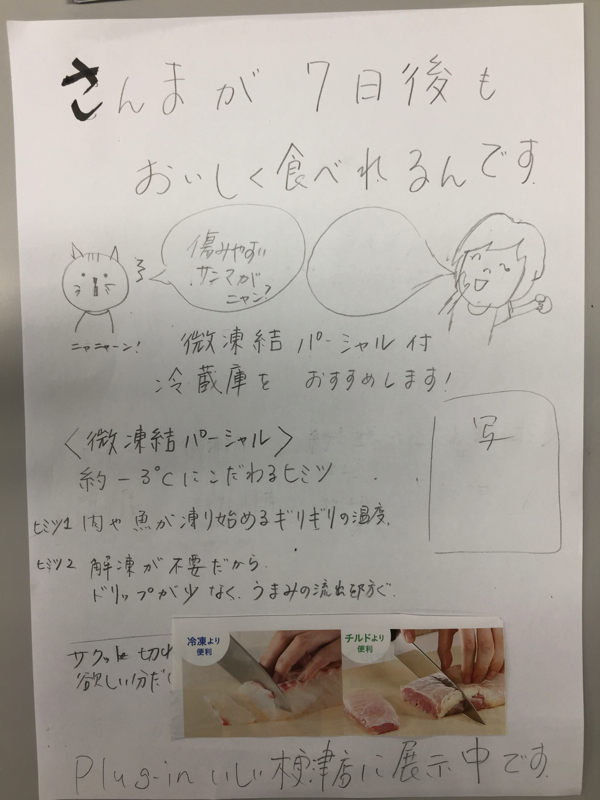 さんまが 7日後も
おいしく食べれるんです
傷みやすい
サンマが
ニャン?
ニャニャーン!
微凍結パーシャル付
冷蔵庫を おすすめします!
〈微凍結パーシャル〉
約-3℃にこだわるヒミツ
写
ヒミツ1 肉や魚が凍り始めるギリギリの温度。
ヒミツ2 解凍が不要だから
ドリップが少なく、うまみの流出を防ぐ。
サクッと切れ
欲しい分だけ
冷凍より
便利
チルドより
便利
Plug-in いしい 店に展示中です。